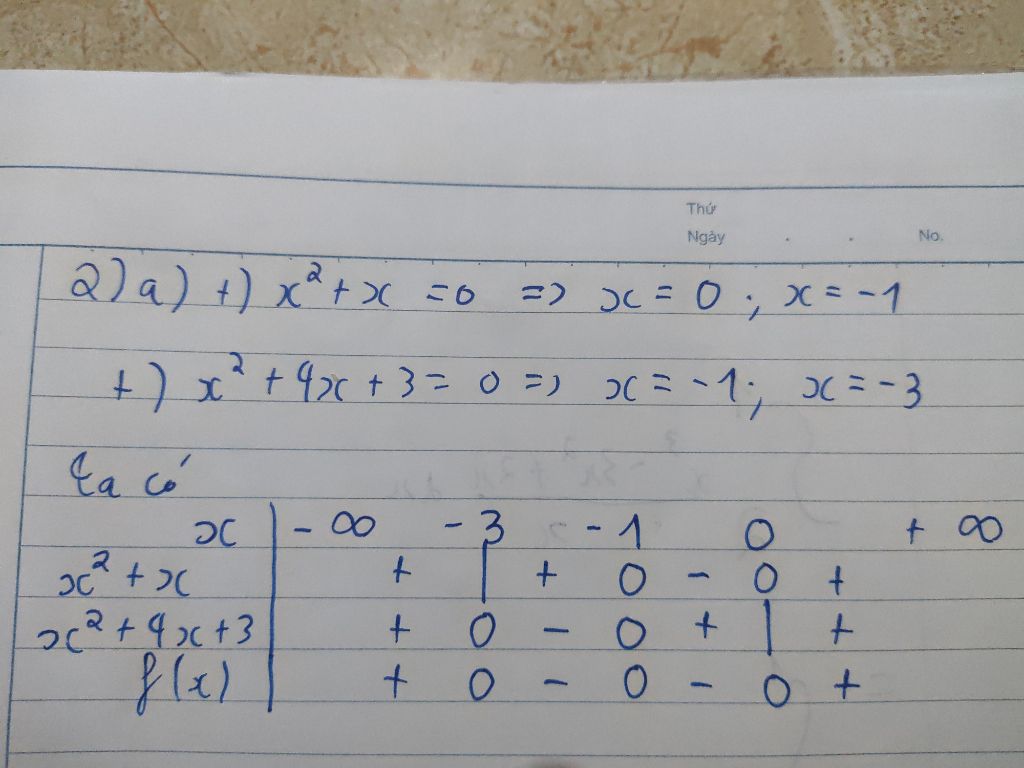 Thứ
Ngày . . No.
2) a) +) x² + x = 0 => x = 0 ; x = -1
+) x² + 4x + 3 = 0 => x = -1 ; x = -3
ta có
x | -∞ -3 -1 0 +∞
x² + x | + | + 0 - 0 +
x² + 4x + 3 | + 0 - 0 + | +
f(x) | + 0 - 0 - 0 +